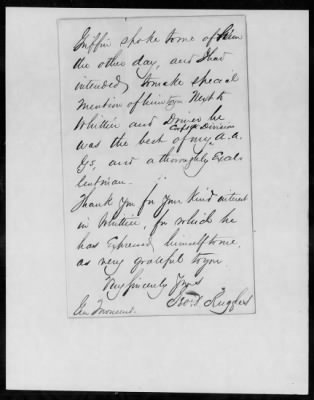 Griffin spoke to me of him
the other day, and I had
intended, to make special
mention of him to you. Next to
Whittier and Drinn he
Corps & Division
was the best of my A.A.
Gs, and a thoroughly excel-
lent man.
Thank you for your kind interest
in Whittier, for which he
has expressed himself to me,
as very grateful to you
Very Sincerely Yours
Geo. D. Ruggles
Gen